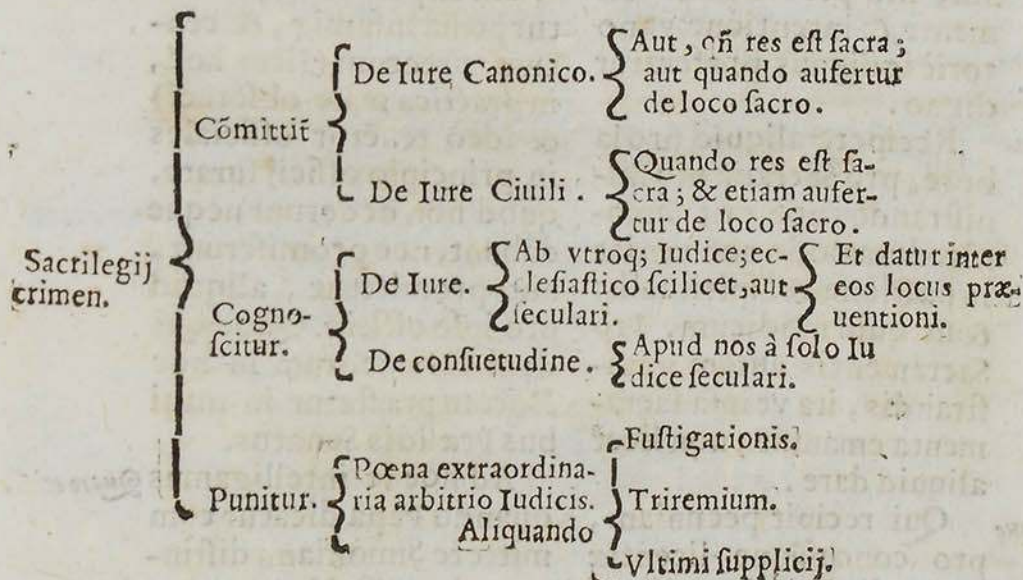 Sacrilegij
crimen.
Cõmittit̃
De Iure Canonico.
Aut, qñ res eſt ſacra;
aut quando aufertur
de loco ſacro.
De Iure Ciuili.
Quando res eſt ſa-
cra; & etiam aufer-
tur de loco ſacro.
Cogno-
ſcitur.
De Iure.
Ab vtroq; Iudice; ec-
cleſiaſtico ſcilicet, aut
ſeculari.
Et datur inter
eos locus præ-
uentioni.
De conſuetudine.
Apud nos à ſolo Iu
dice ſeculari.
Punitur.
Pœna extraordina-
ria arbitrio Iudicis.
Aliquando
Fuſtigationis.
Triremium.
Vltimi ſupplicij.